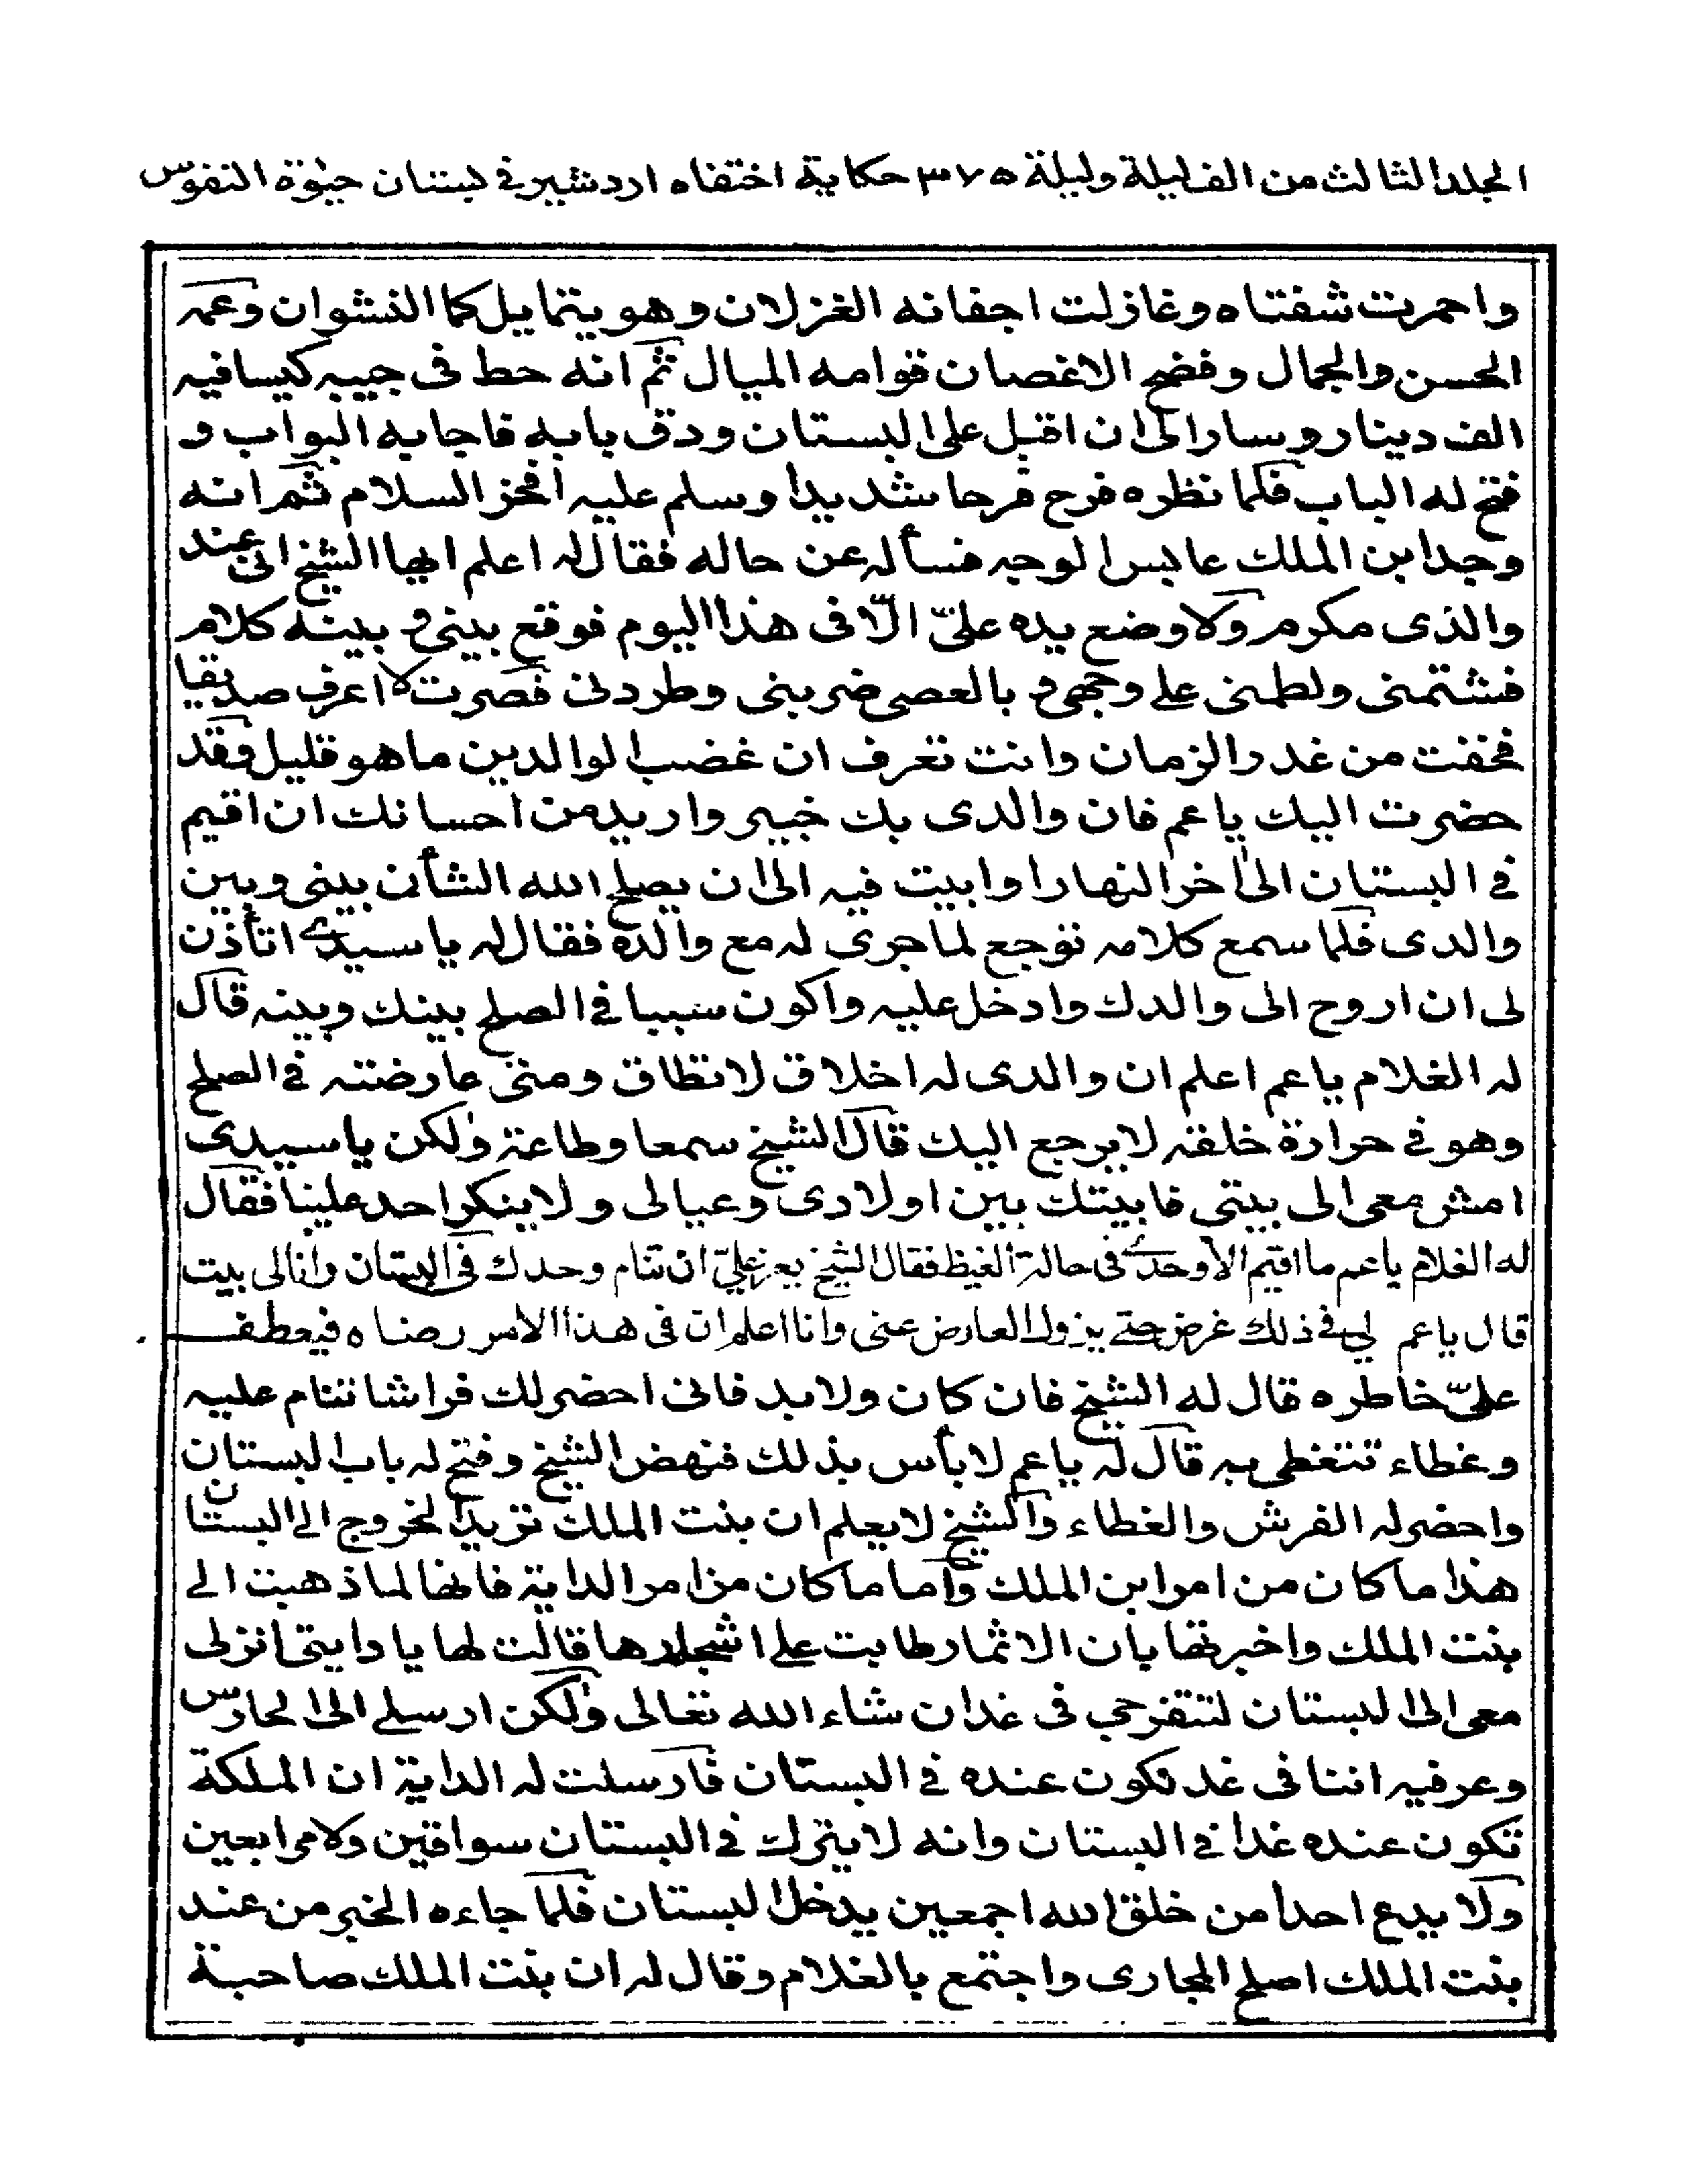 المجلد الثالث من الف ليلة وليلة ٣٧٥ حكاية اختفاء اردشير في بستان حيٰوة النفوس
واحمرت شفتاه وغازلت اجفانه الغزلان وهو يتمايل كما النشوان وعمه
الحسن والجمال وفضح الاغصان قوامه الميال ثم انه حط فى جيبه كيسا فيه
الف دينار وسار الى ان اقبل على البستان ودق بابه فاجابه البواب و
فتح له الباب فلما نظره فرح فرحا شديدا وسلم عليه افخر السلام ثم انه
وجد ابن الملك عابس الوجه فسأله عن حاله فقال له اعلم ايها الشيخ انى عند
والدى مكرم ولا وضع يده علىّ الّا فى هذا اليوم فوقع بينى و بينه كلام
فشتمنى ولطمنى على وجهى و بالعصى ضربنى وطردنى فصرت لا اعرف صديقا
فخفت من غدر الزمان وانت تعرف ان غضب الوالدين ما هو قليل وقد
حضرت اليك يا عم فان والدى بك خبير واريد من احسانك ان اقيم
فى البستان الىٰ اخر النهار او ابيت فيه الى ان يصلح الله الشأن بينى وبين
والدى فلما سمع كلامه توجع لما جرى له مع والده فقال له يا سيدى اتأذن
لى ان اروح الى والدك وادخل عليه واكون سببا فى الصلح بينك وبينه قال
له الغلام يا عم اعلم ان والدى له اخلاق لا تطاق ومتى عارضته فى الصلح
وهو فى حرارة خلقه لا يرجع اليك قال الشيخ سمعا وطاعة ولٰكن يا سيدى
امش معى الى بيتى فابيتك بين اولادى وعيالى ولا ينكر احد علينا فقال
له الغلام يا عم ما اقيم الا وحدى فى حالة الغيظ فقال الشيخ يعز علىّ ان تنام وحدك فى البستان وانا لى بيت
قال يا عم لى فى ذلك غرض حتى يزول العارض عنى وانا اعلم ان فى هذا الامر رضاه فيعطف
علىّ خاطره قال له الشيخ فان كان ولا بد فانى احضر لك فراشا تنام عليه
وغطاء تتغطى به قال له يا عم لا بأس بذلك فنهض الشيخ وفتح له باب البستان
واحضر له الفرش والغطاء والشيخ لا يعلم ان بنت الملك تريد الخروج الى البستان
هذا ما كان من امر ابن الملك وأما ما كان من امر الداية فانها لما ذهبت الى
بنت الملك واخبرتها بان الاثمار طابت على اشجارها قالت لها يا دايتى انزلى
معى الى البستان لنتفرجى فى غد ان شاء الله تعالى ولٰكن ارسلى الى الحارس
وعرفيه اننا فى غد نكون عنده فى البستان فارسلت له الداية ان الملكة
تكون عنده غدا فى البستان وانه لا يترك فى البستان سواقين ولا مرابعين
ولا يدع احدا من خلق الله اجمعين يدخل البستان فلما جاءه الخبر من عند
بنت الملك اصلح المجارى واجتمع بالغلام وقال له ان بنت الملك صاحبة